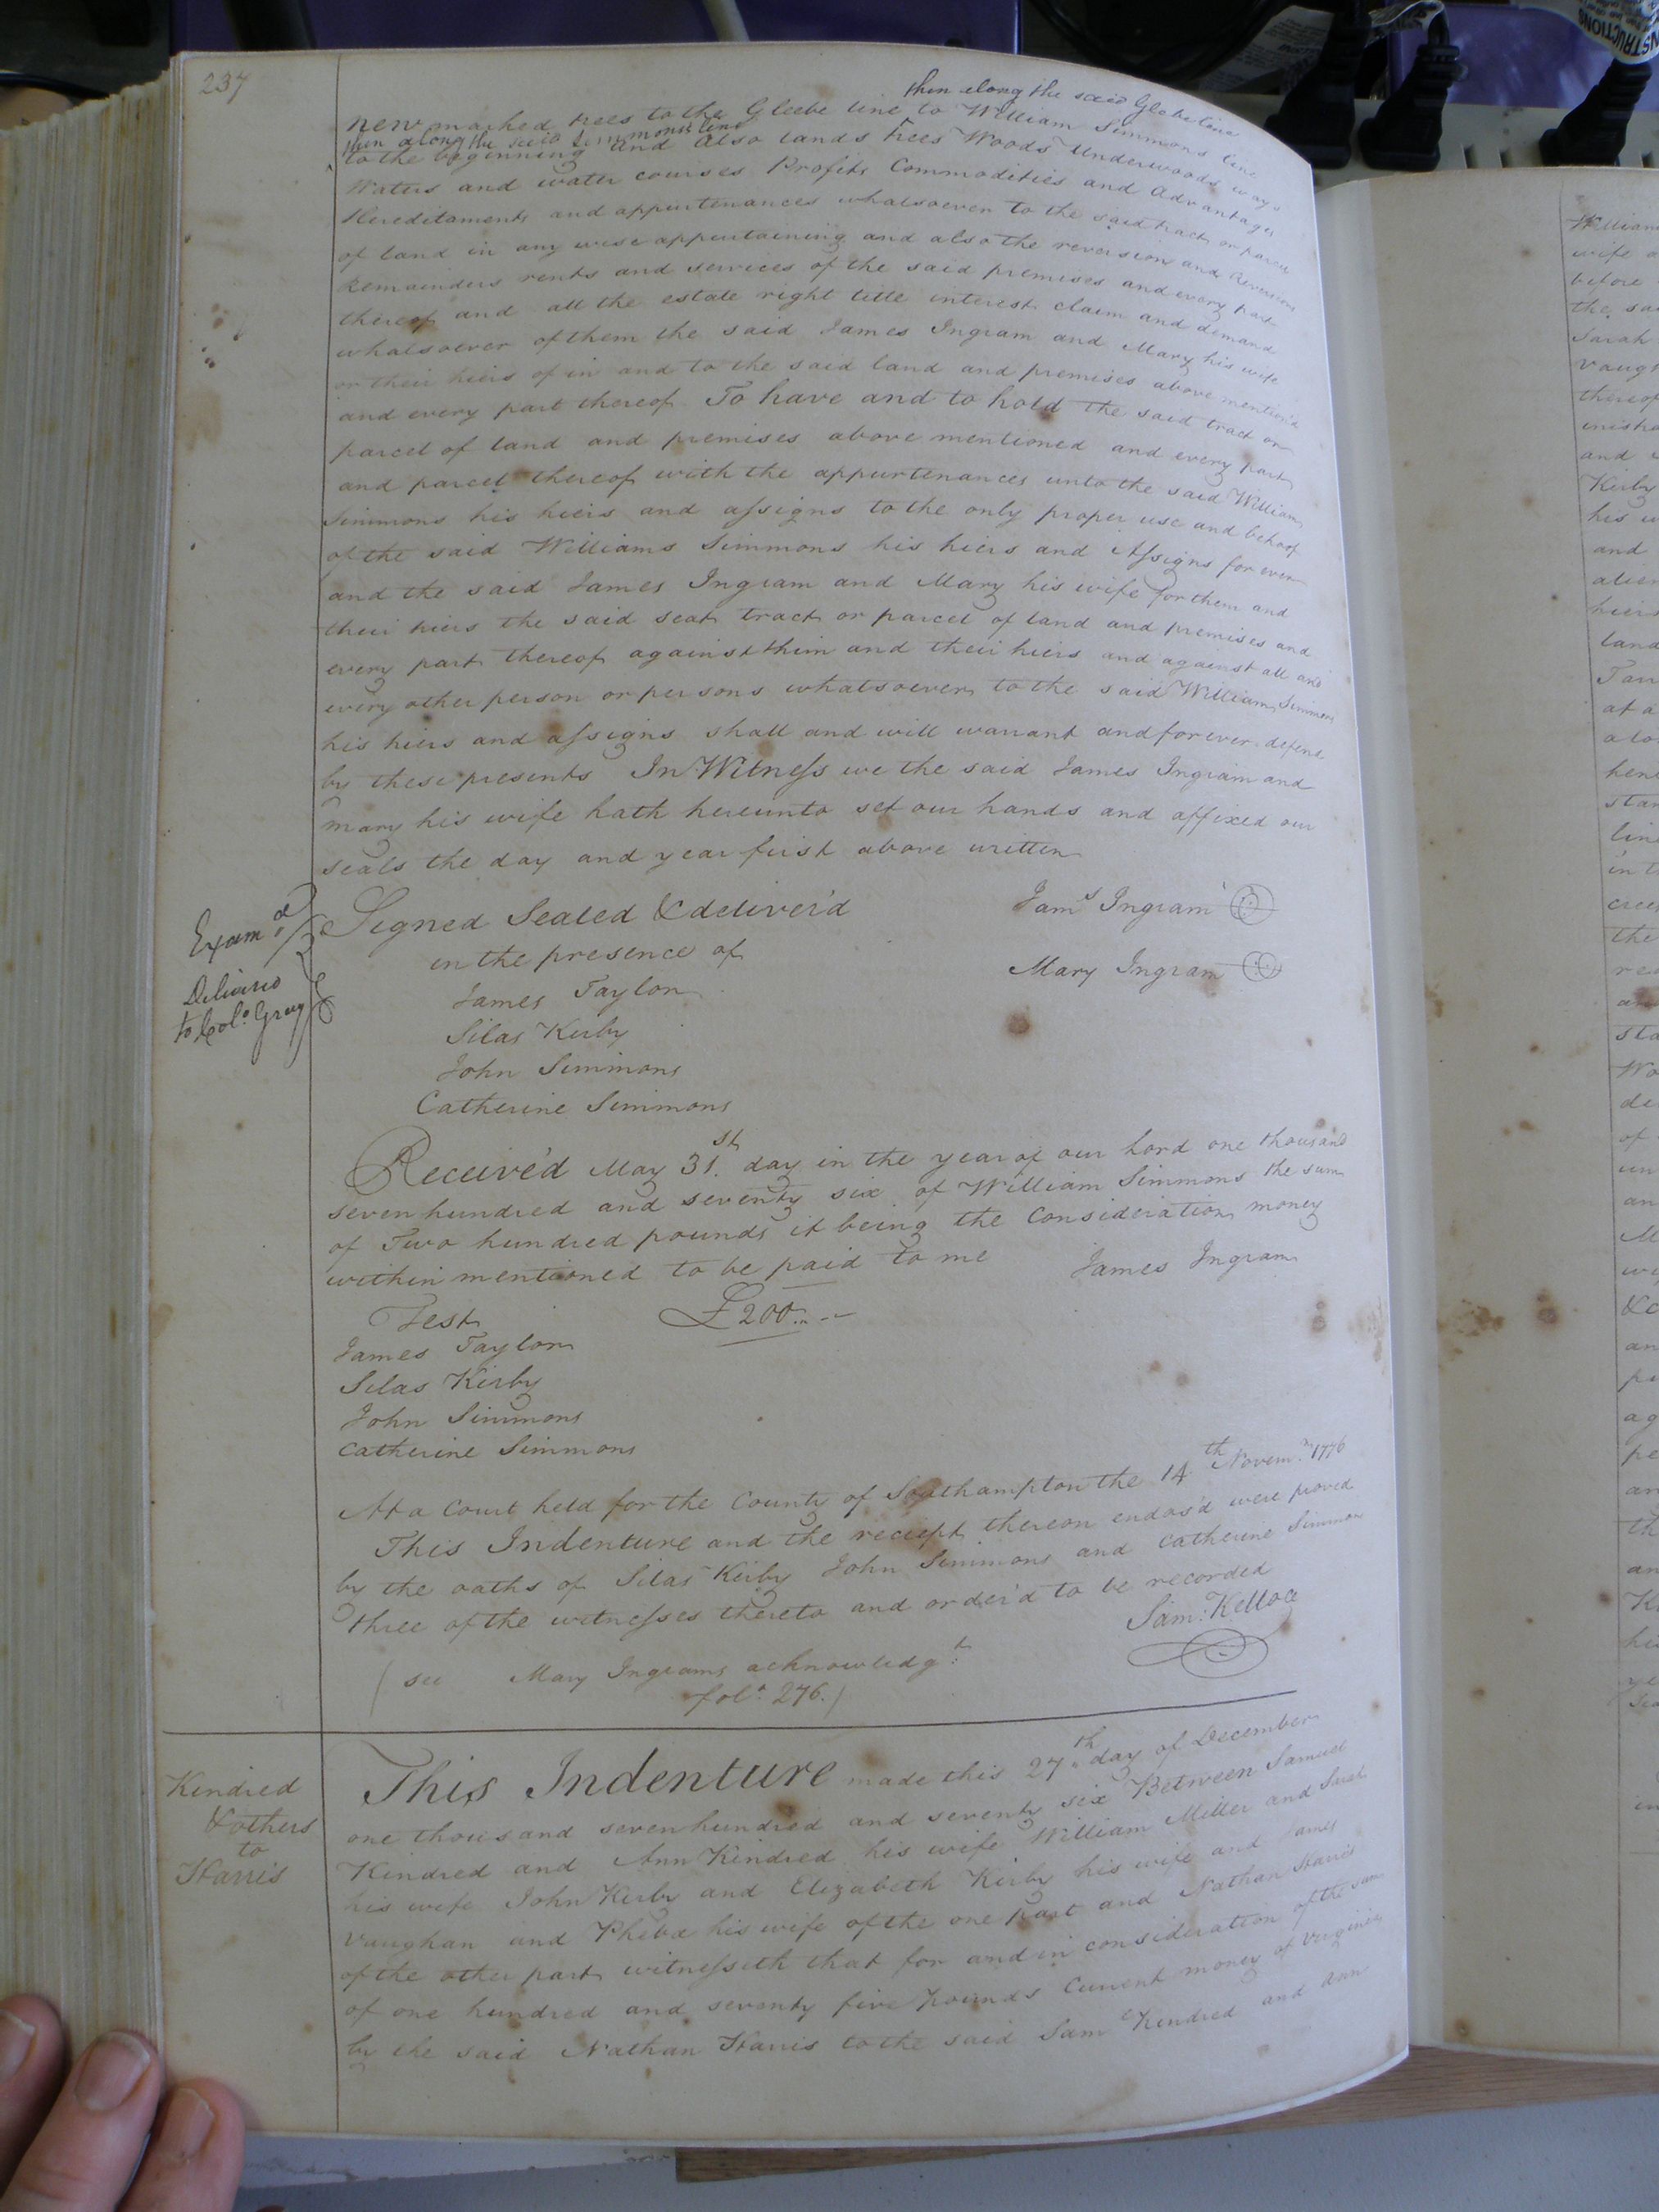 237
then along the said Glebe line
new marked trees to the Gleebe line to William Simmons line
then along the said Simmons line
to the beginning and also lands trees Woods Underwoods ways
Waters and water courses Profits Commodities and advantages
Hereditaments and appurtenances whatsoever to the said tract or parcel
of land in any wise appurtaining and also the reversion and Reversions
Remainders rents and services of the said premises and every part
thereof and all the estate right title interest claim and demand
whatsoever of them the said James Ingram and Mary his wife
or their hiers of in and to the said land and premises above mention'd
and every part thereof To have and to hold the said tract or
parcel of land and premises above mentioned and every part
and parcel thereof with the appurtenances unto the said William
Simmons his hiers and assigns to the only proper use and behoof
of the said Williams Simmons his hiers and Assigns for ever
and the said James Ingram and Mary his wife for them and
their hiers the said seat tract or parcel of land and premises and
every part thereof against thim and their hiers and against all and
every other person or persons whatsoever to the said William Simmons
his hiers and assigns shall and will warrant and forever defend
by these presents In Witness we the said James Ingram and
mary his wife hath hereunto set our hands and affixed our
seals the day and year first above written
Signed Sealed & deliver'd Jams Ingram
in the presence of Mary Ingram
Examd
Deliverd
to Colo. Gray
James Taylor
Silas Kirby
John Simmons
Catherine Simmons
Receiv'd May 31st day in the year of our Lord one thousand
seven hundred and seventy six of William Simmons the sum
of Two hundred pounds it being the Consideration money
within mentioned to be paid to me James Ingram
Test £200..--
James Taylor
Silas Kirby
John Simmons
Catherine Simmons
At a Court held for the County of Southampton the 14th Novemr 1776
This Indenture and the reciept thereon endos'd were proved
by the oaths of Silas Kirby John Simmons and Catherine Simmons
three of the witnesses thereto and order'd to be recorded
Sam: Kelloe
( see Mary Ingrams acknowledgt
folo 276. )
Kindred
& others
to
Harris
This Indenture made this 27th day of December
one thousand seven hundred and seventy six Between Samuel
Kindred and Ann Kindred his wife William Miller and Sarah
his wife John Kirby and Elizabeth Kirby his wife and James
Vaughan and Phebe his wife of the one part and Nathan Harris
of the other part witnesseth that for and in consideration of the sum
of one hundred and seventy five Pounds Current money of Virginia
by the said Nathan Harris to the said Saml Kindred and Ann
William
wife
before
the
Sarah
thereof
and
Kirby
and
hiers
land
at a
the
of
and
INSTRUCTIONS